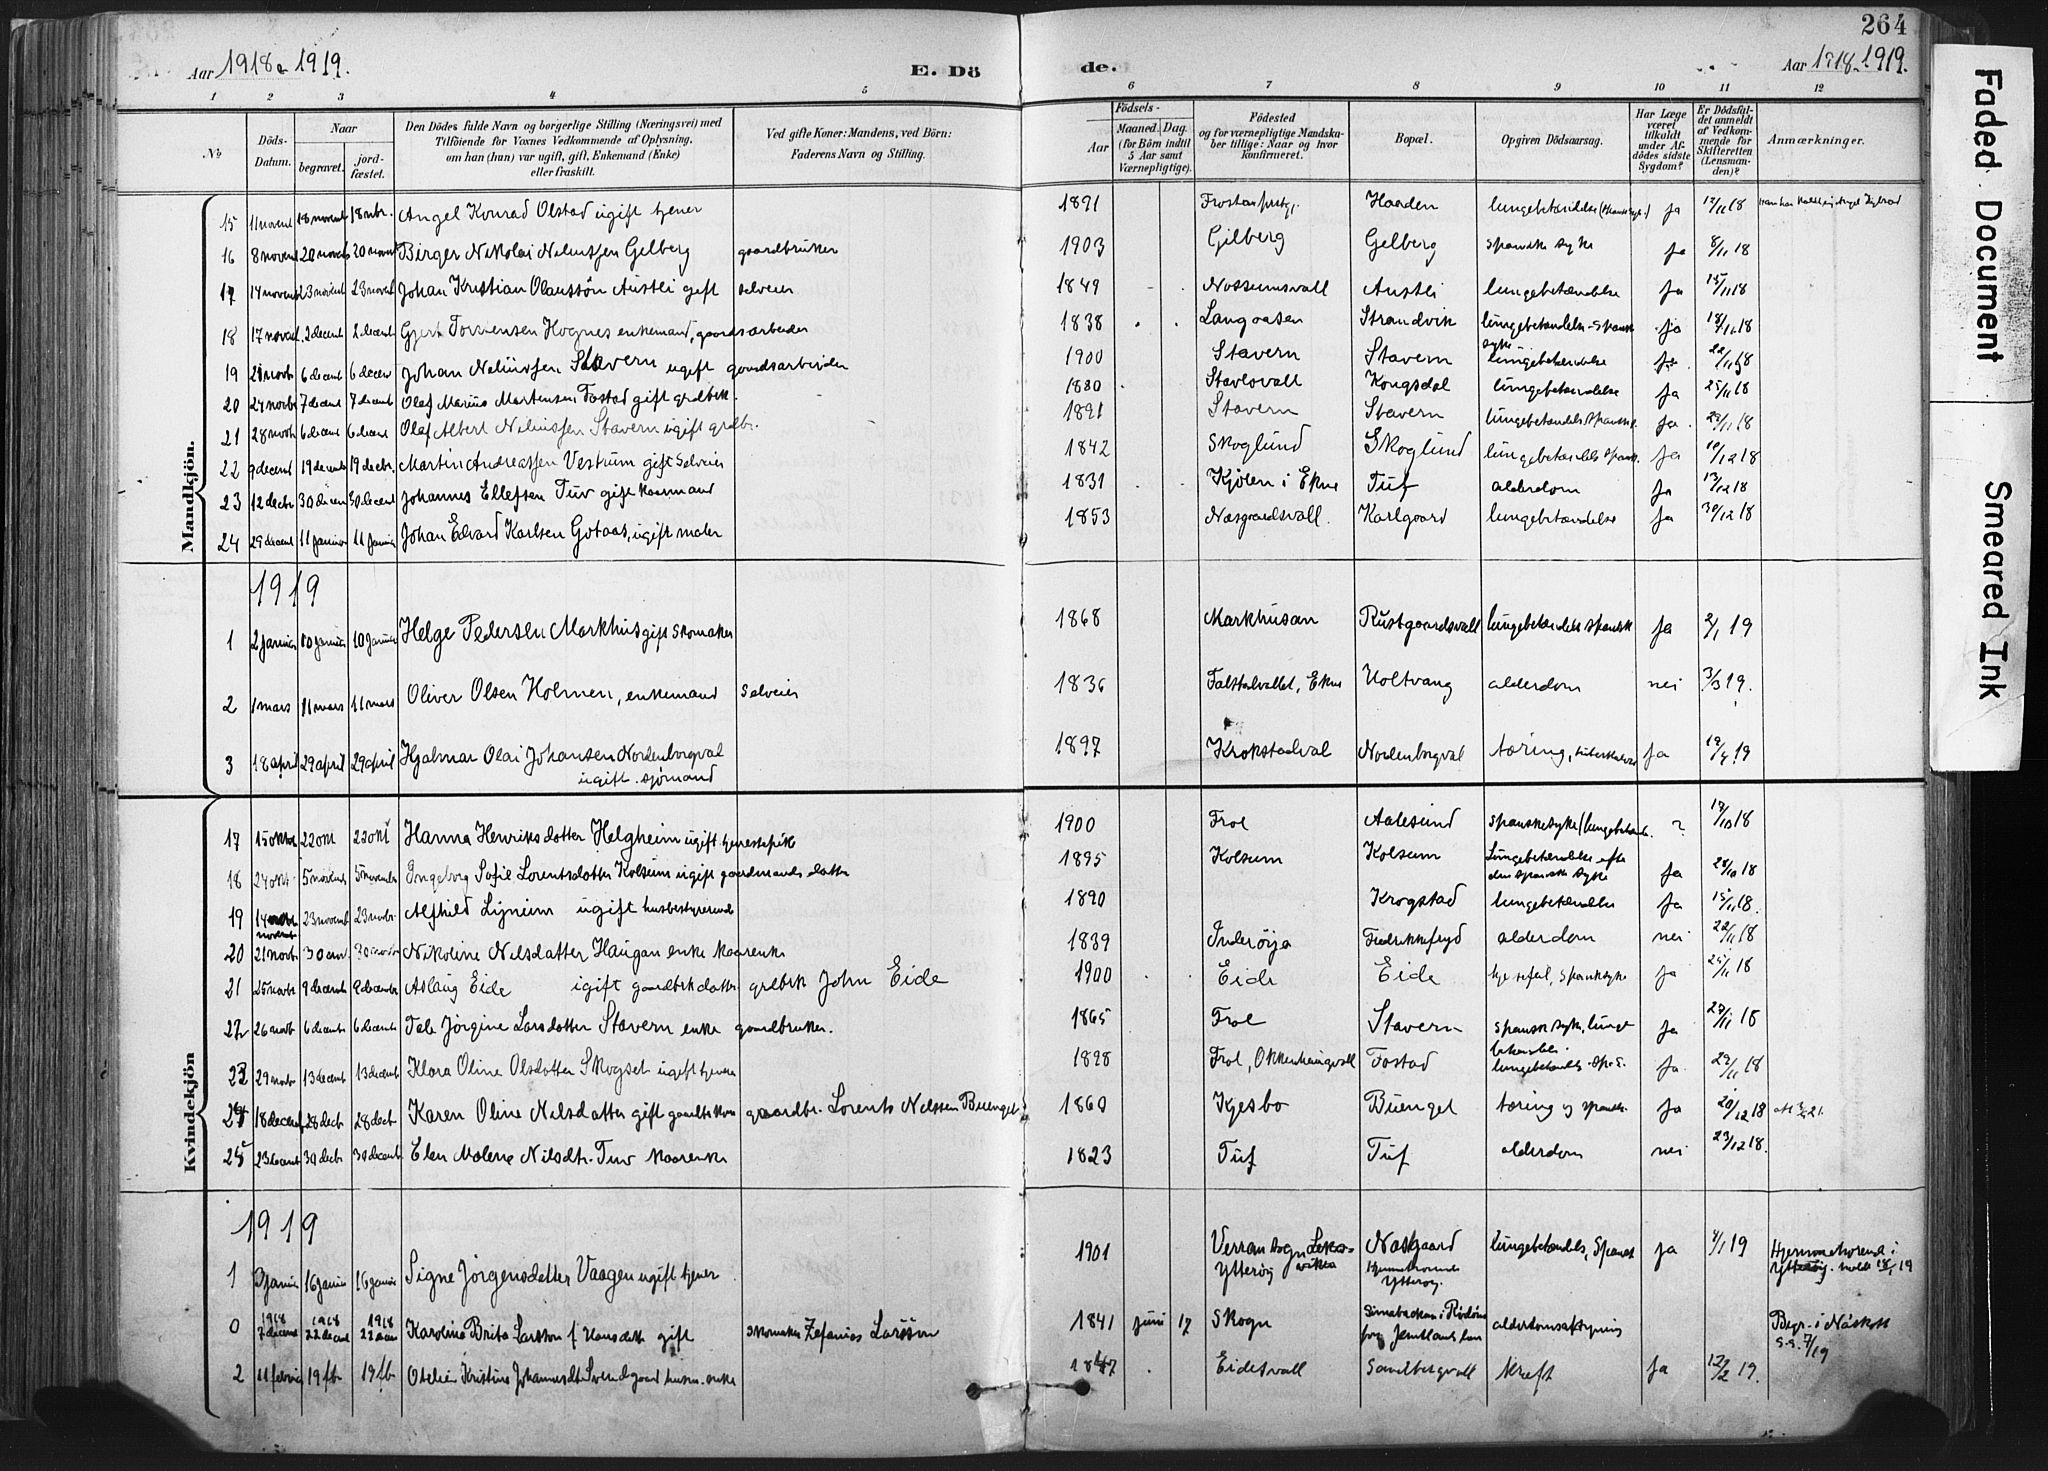 264
Aar 1918 & 1919.
E. Döde.
Aar 1918-1919.
1 2 3 4 5 6 7 8 9 10 11 12
No
Döds-Datum.
Naar
begravet.
jordfæstet.
Den Dödes fulde Navn og borgerlige Stilling (Næringsvei) med Tilföiende for Voxnes Vedkommende af Oplysning, om han (hun) var ugift, gift, Enkemand (Enke) eller fraskilt.
Ved gifte Koner: Mandens, ved Börn: Faderens Navn og Stilling.
Födsels-
Aar
Maaned. Dag.
(for Börn indtil 5 Aar samt Værnepligtige).
Födested og for værnepligtige Mandskaber tillige: Naar og hvor konfirmeret.
Bopæl.
Opgiven Dödsaarsag.
Har Læge været tilkaldt under Afdödes sidste Sygdom?
Er Dödsfaldet anmeldt af Vedkommende for Skifteretten (Lensmanden)?
Anmærkninger.
Mandkjön.
15 11 novent 18 novent 18 nbr. Angel Konrad Olstad ugift tjener 1891 Haaden ja 17/11 18
16 8 novent 20 novent 20 novent Birger Nikolai Nilussen Gelberg gaardbruker 1903 Gilberg Gelberg spanske syke ja 8/11 18
17 14 novent 23 novent 23 novent Johan Kristian Olaussön Austli gift selveier 1849 Nossumsvall Austli lungebetændelse ja 15/11 18
18 17 novent 2 decent 2 decent Hognes enkemand, gaardsarbeider 1838 Langaasen Strandvik lungebetændelse spansk syke ja 18/11 18
19 21 novbr 6 decent 6 decent Johan Neliussen Stavern ugift gaardsarbeider 1900 Stavern Stavern lungebetændelse ja 22/11 18
20 24 novbr 7 decent 7 decent Olaf Marius Martensen Fostad gift grdbrk. 1880 Stavlovall Kongsdal lungebetændelse ja 25/11 18
21 28 novbr 6 decent 6 decent Olaf Albert Neliussen Stavern ugift grdbr. 1891 Stavern Stavern lungebetændels spansk s. ja. 29/11 18
22 9 decent 19 decent 19 decbr. Martin Andreassen Vestrum gift Selveier 1842 Skoglund Skoglund lungebetændels spansk. ja 10/12 18
23 12 decbr 30 decent 30 decent Johannes Ellefsen Tuv gift kaarmand 1831 Kjölen i Ekne Tuf alderdom ja 13/12 18
24 29 decent 11 januar 11 januar Johan Edvard Karlsen Gotaas, ugift maler 1853 Næsgaardsvall. Karlgaard lungebetændelse ja 30/12 18
1919
1 2 januar 10 januar 10 januar Helge Pedersen Markhus gift skomaker 1868 Markhusan Rustgaardsvall lungebetændels spansk ja 2/1 19
2 1 mars 11 mars 11 mars Oliver Olsen Holmen, enkemand Selveier 1836 Falstadvallet, Ekne Holtvang alderdom nei 3/3 19.
3 18 april 29 april 29 april Hjalmar Olai Johansen Nordenborgval 1897 Krokstadval Nordenborgval tæring, tuberkulose ja 19/4 19
ugift. sjömand
Kvindekjön
17 15 oktbr 22 okt 22 okt Hanna Henriksdatter Helgheim ugift tjenestepike 1900 Frol Aalesund spanskesyke/lungebetænd. ? 17/10 18
18 24 okt. 5 novent 5 novembr Ingeborg Sofie Lorentsdatter Kolsum ugift gaardmands datter 1895 Kolsum Kolsum Lungebetændelse efter den spanske syke ja 28/10 18
19 14 novent 23 novent 23 novbr. Alfhild Lyneim ugift husbestyrerinde 1890 Krogstad lungebetændelse ja 15/11 18.
20 21 novbr 30 nov 30 novbr Nikoline Nilsdatter Haugan enke kaarenke 1839 Inderöya Fredrikkefryd alderdom nei 22/11 18
21 25 novbr 9 decent 9 decembr Aslaug Eide ugift gaardbrk datter grdbrk John Eide 1900 Eide Eide spansksyke ja 25/11 18
22 26 novbr 6 decent 6 decent Tale Jörgine Larsdatter Stavern enke gaardbruker. 1865 Frol Stavern spansk syke, lunge betændels. ja 27/11 18
23 29 novbr 13 decent 13 decent Klara Oline Olsdatter Skogset ugift tjener 1898 Frol, Okkenhaugvall Fostad lungebetændels sp. s. ja 29/11 18
24 18 decent 28 decbr 28 decbr Karen Oline Nilsdatter gift gaardbr kone gaardbr. Lorents Nilssen Buenget 1860 Kjesbo Buenget tæring og spansk. ja 20/12 18
25 23 decent 30 decbr 30 decent Elen Malene Nilsdtr. Tuv kaarenke 1823 Tuf Tuf alderdom nei 23/12 18.
1919
1 3 januar 16 januar 16 januar Signe Jörgensdatter Vaagen ugift tjener 1901 Verran sogn Ytteröy Næsgaard Hjemmehörende Ytteröy. lungebetændels, spansk ja 4/1 19 Hjemmehörende i Ytteröy. 19
0 1918 7 decent 1918 22 decent 1918 22 decem Karoline Brita Larsson f Hansdatter gift skomaker Zefanias Larsson 1841 juni 17 Skogn Jemtlands län alderdomsaftyning Begr. i Näskott 7/19
2 11 februar 19 fbr 19 fbr Otelie Kristine Johannesdt Svendgaard husm. enke 1847 Eidesvall Sandbergvall kræft ja 12/2 19.
Faded Document
Smeared Ink